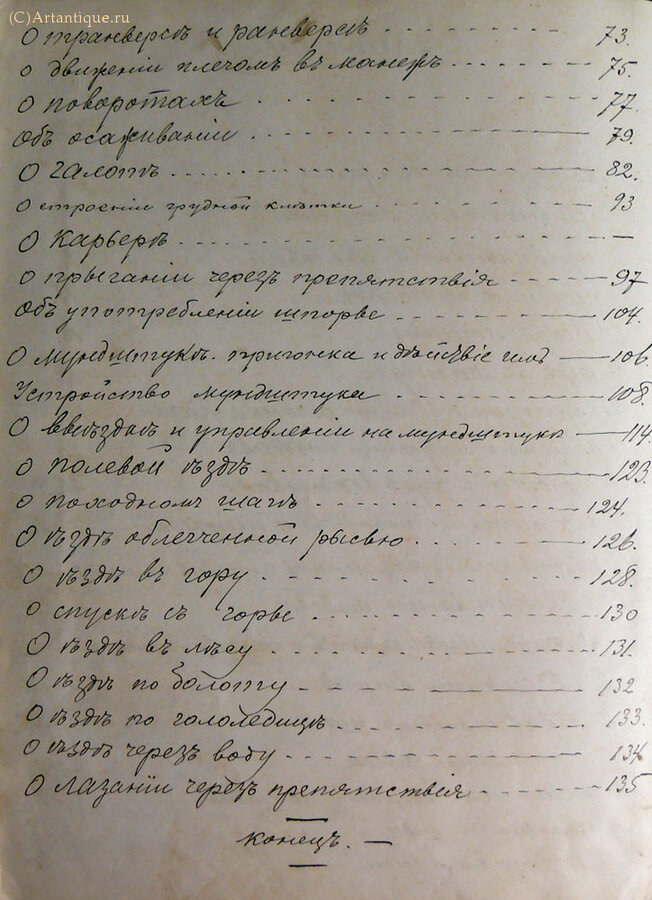 (C)Artantique.ru
О транверсѣ и ранверсѣ 73.
О движеніи плечомъ въ манежъ 75.
О поворотахъ 77.
Объ осаживаніи 79.
О галопѣ 82.
О строеніи грудной клѣтки 93
О карьерѣ —
О прыганіи черезъ препятствія 97
Объ употребленіи шпоръ 104.
О мундштукѣ. пригонка и дѣйствіе имъ — 106
Устройство мундштука 108.
О выѣздкѣ и управленіи на мундштукѣ — 114.
О полевой ѣздѣ 123.
О походномъ шагѣ 124.
О ѣздѣ облегченной рысью 126.
О ѣздѣ въ гору 128.
О спускѣ съ горы 130
О ѣздѣ въ лѣсу 131.
О ѣздѣ по болоту 132
О ѣздѣ по гололедицѣ 133.
О ѣздѣ черезъ воду 134
О лазаніи черезъ препятствія 135
Конецъ. —